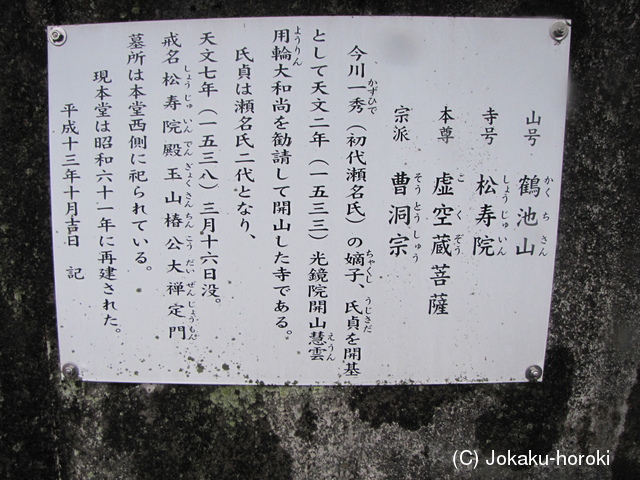 山号 鶴池山
かくちさん
寺号 松寿院
しょうじゅいん
本尊 虚空蔵菩薩
こくぞう
宗派 曹洞宗
そうとうしゅう
今川一秀（初代瀬名氏）の嫡子、氏貞を開基
かずひで ちゃくし うじさだ
として天文二年（一五三三）光鏡院開山慧雲
えうん
用輪大和尚を勧請して開山した寺である。
ようりん
氏貞は瀬名氏二代となり、
天文七年（一五三八）三月十六日没。
戒名松寿院殿玉山椿公大禅定門
しょうじゅいんでんぎょくさんちんこうだいぜんじょうもん
墓所は本堂西側に祀られている。
現本堂は昭和六十一年に再建された。
平成十三年十月吉日 記
(C) Jokaku-horoki